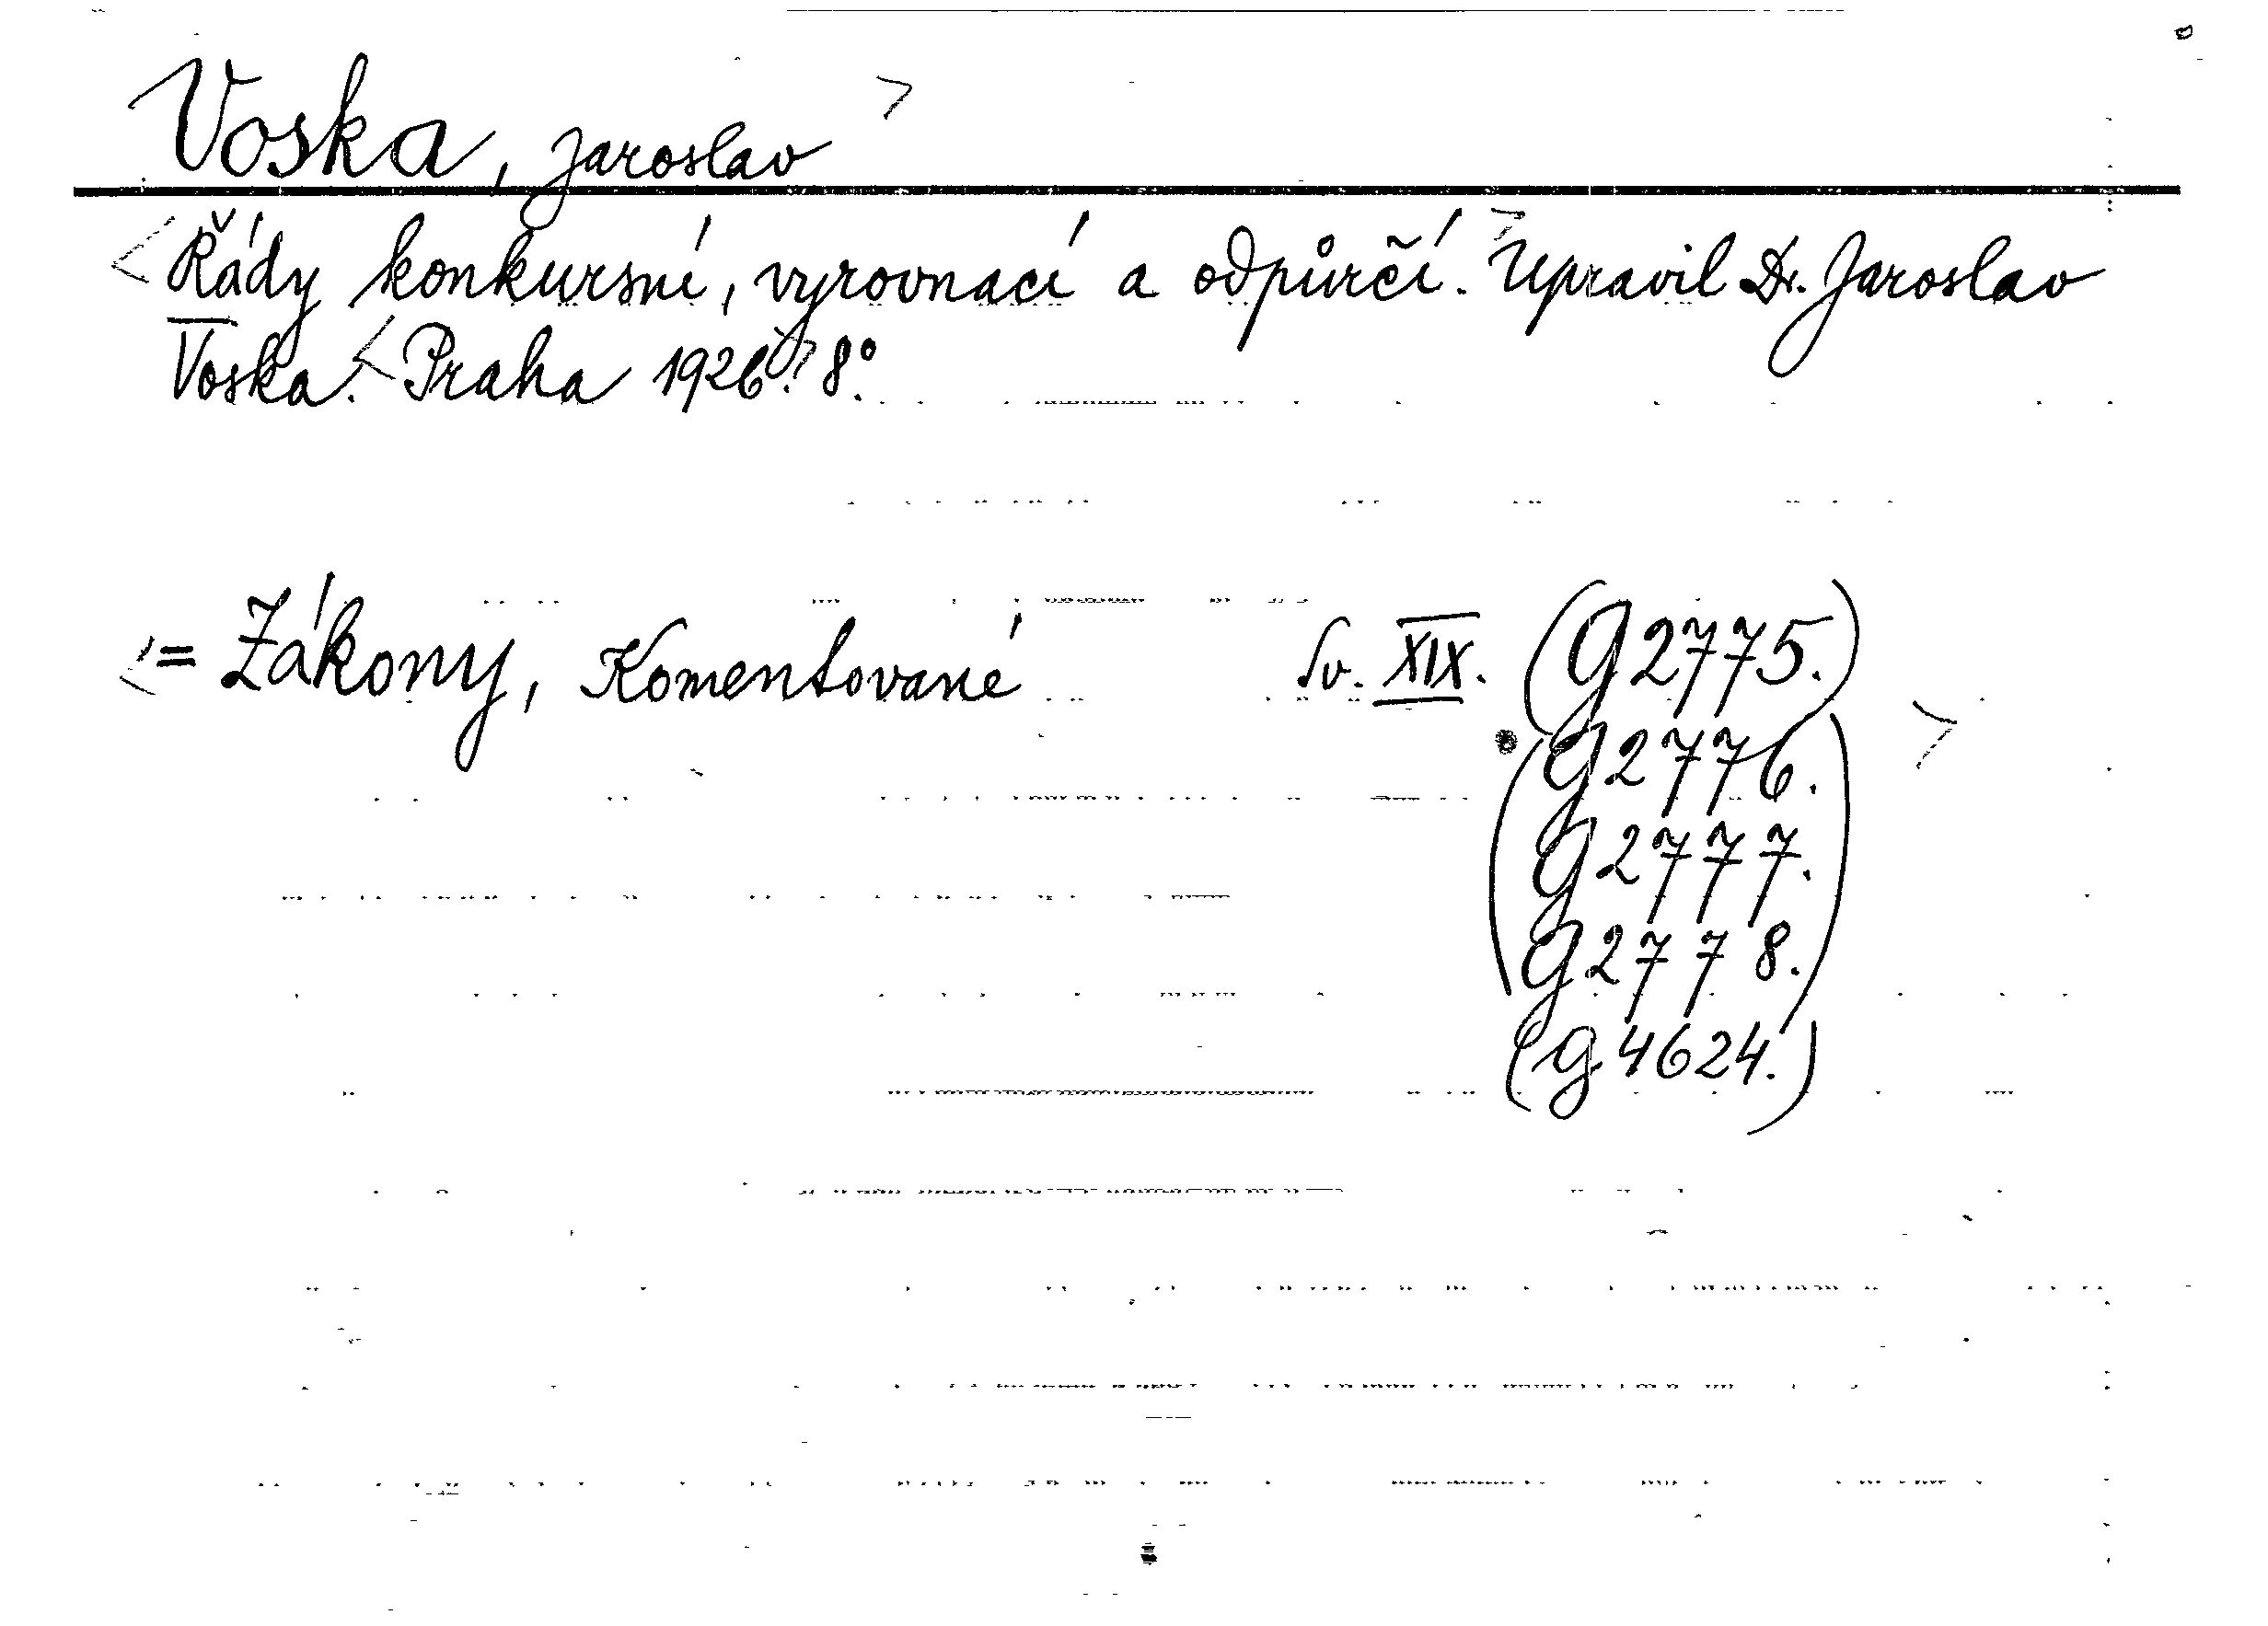 Voska, Jaroslav
Řády konkursní, vyrovnací a odpůrčí. Upravil Dr. Jaroslav
Voska. Praha 1926. 8°.
= Zákony, Komentované Sv. XIX. (G2775.)
(G2776.
G2777.
G2778.)
(G4624.)